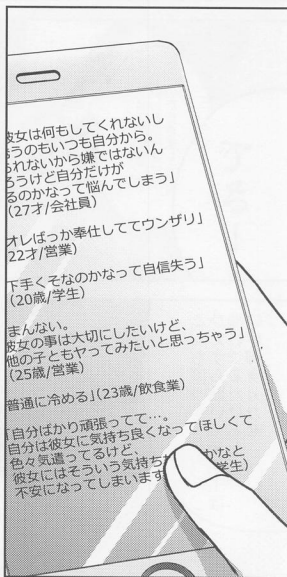 女は何もしてくれないし
うのもいつも自分から。
られないから嫌ではないん
ろうけど自分だけが
るのかなって悩んでしまう」
(27才/会社員)
オレばっか奉仕しててウンザリ」
22才/営業)
下手くそなのかなって自信失う」
(20歳/学生)
まんない。
彼女の事は大切にしたいけど、
他の子ともヤってみたいと思っちゃう」
(25歳/営業)
普通に冷める」(23歳/飲食業)
「自分ばかり頑張ってて…。
自分は彼女に気持ち良くなってほしくて
色々気遣ってるけど、
彼女にはそういう気持ち かなと
不安になってしまいます 学生)